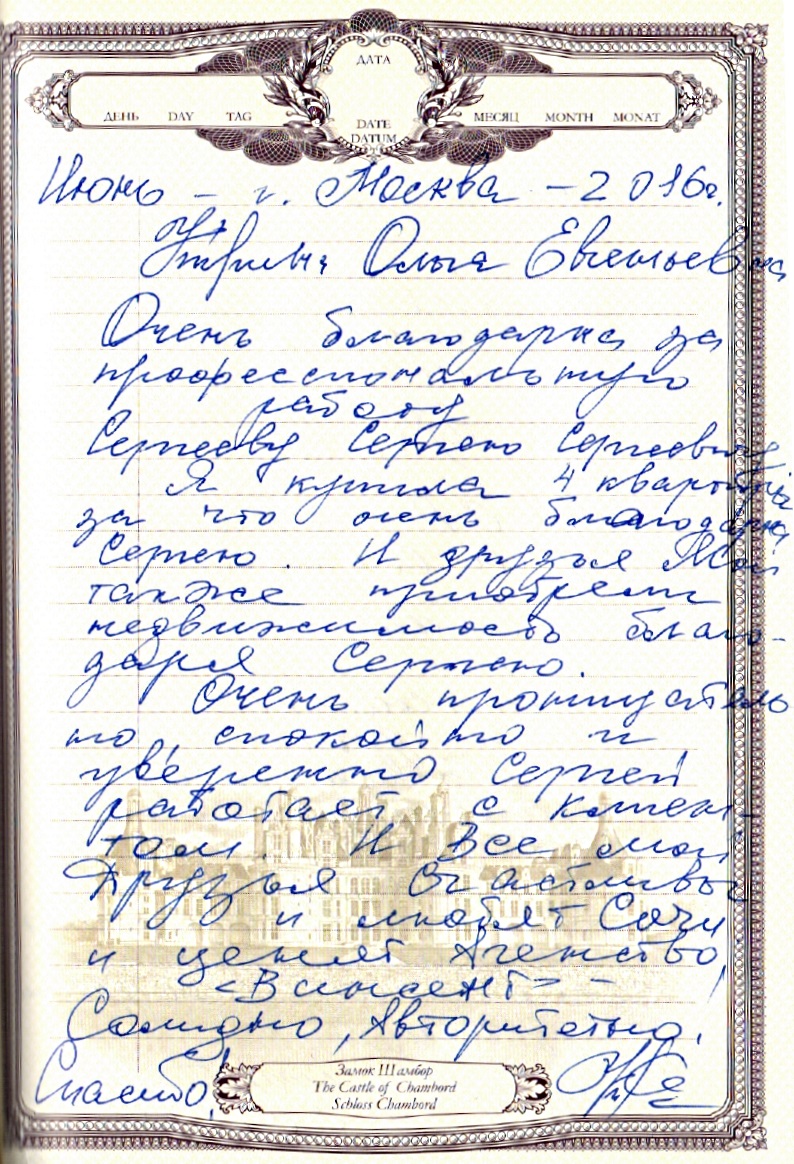 ДАТА
ДЕНЬ DAY TAG
МЕСЯЦ MONTH MONAT
DATE
DATUM
Июнь – г. Москва – 2016г.
Ольга Евгеньевна
Очень благодарна за
профессиональную
работу
Сергееву Сергею Сергеевичу
Я купила 4 квартиры
за что очень благодарна
Сергею. И друзья мои
также приобрели
недвижимость благо-
даря Сергею.
Очень
но, спокойно и
уверенно Сергей
работает с клиен-
том. И Все мои
Друзья Счастливы
и любят Сочи
и ценят Агенство,
«Винсент» –
Солидно, Авторитетно.
Спасибо!
Замок Шамбор
The Castle of Chambord
Schloss Chambord